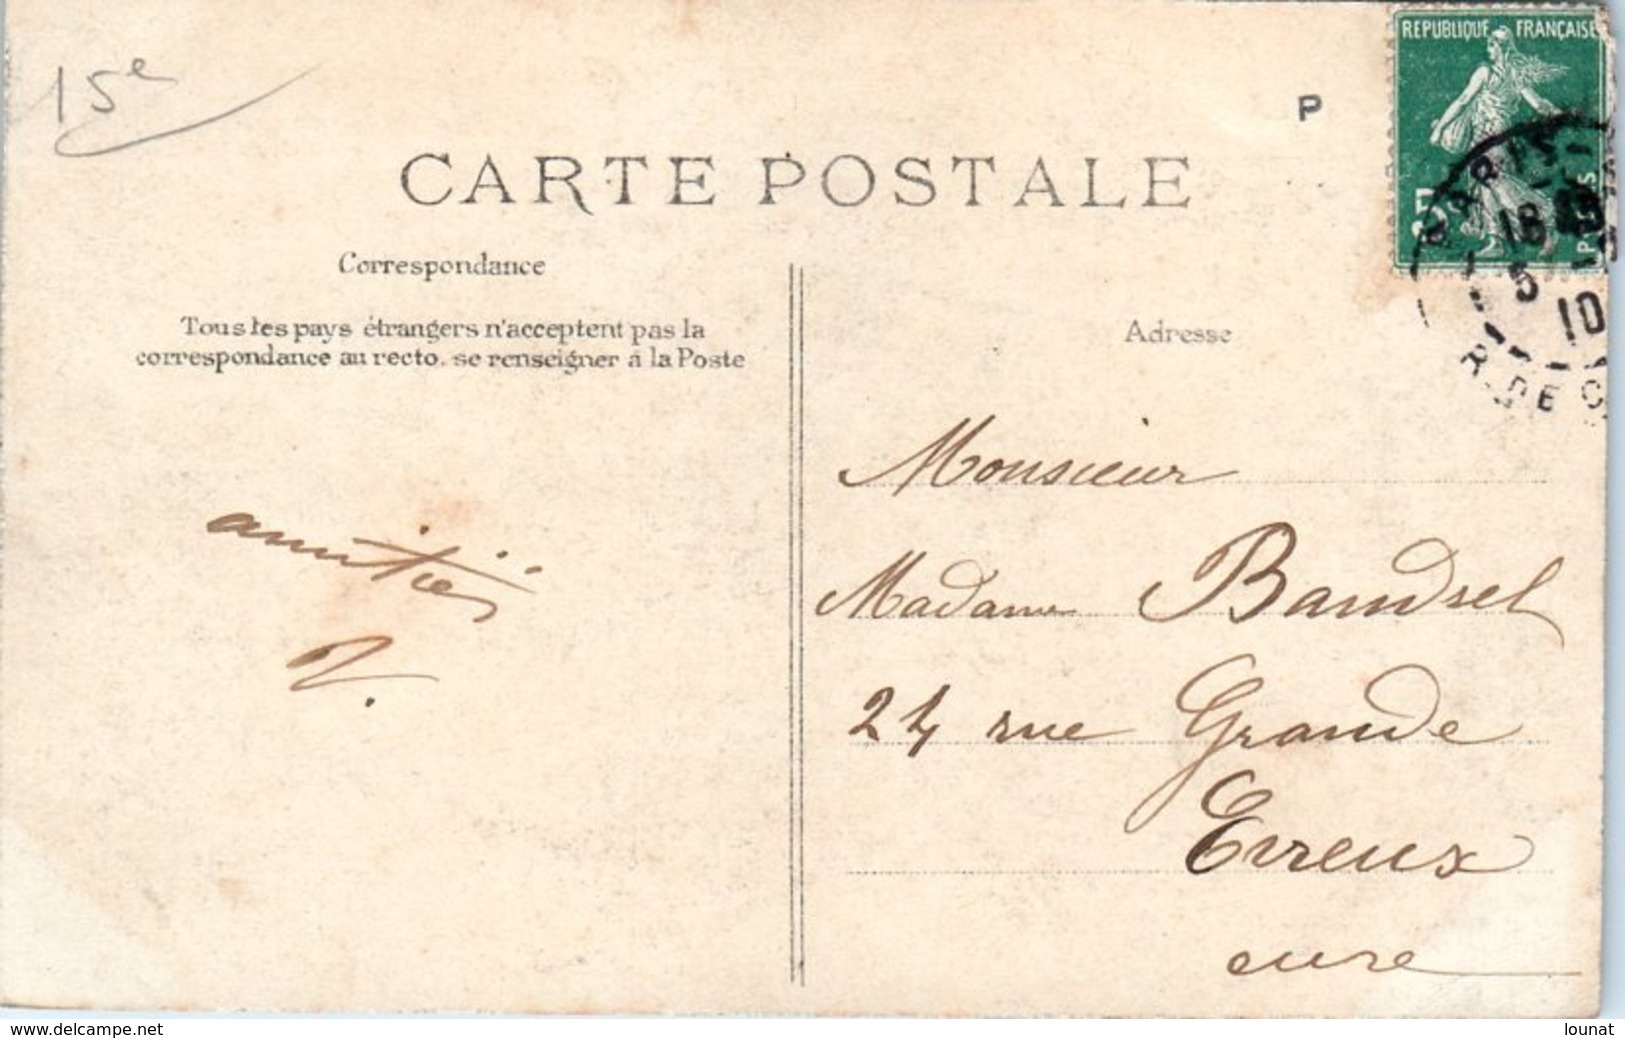 15e
P
REPUBLIQUE FRANÇAISE
CARTE POSTALE
Correspondance
Tous les pays étrangers n'acceptent pas la
correspondance au recto. se renseigner à la Poste
Adresse
PARIS
18
5
10
R. DE C
amitiés
Monsieur
Madame Baudrel
24 rue Grande
Evreux
eure
www.delcampe.net
lounat